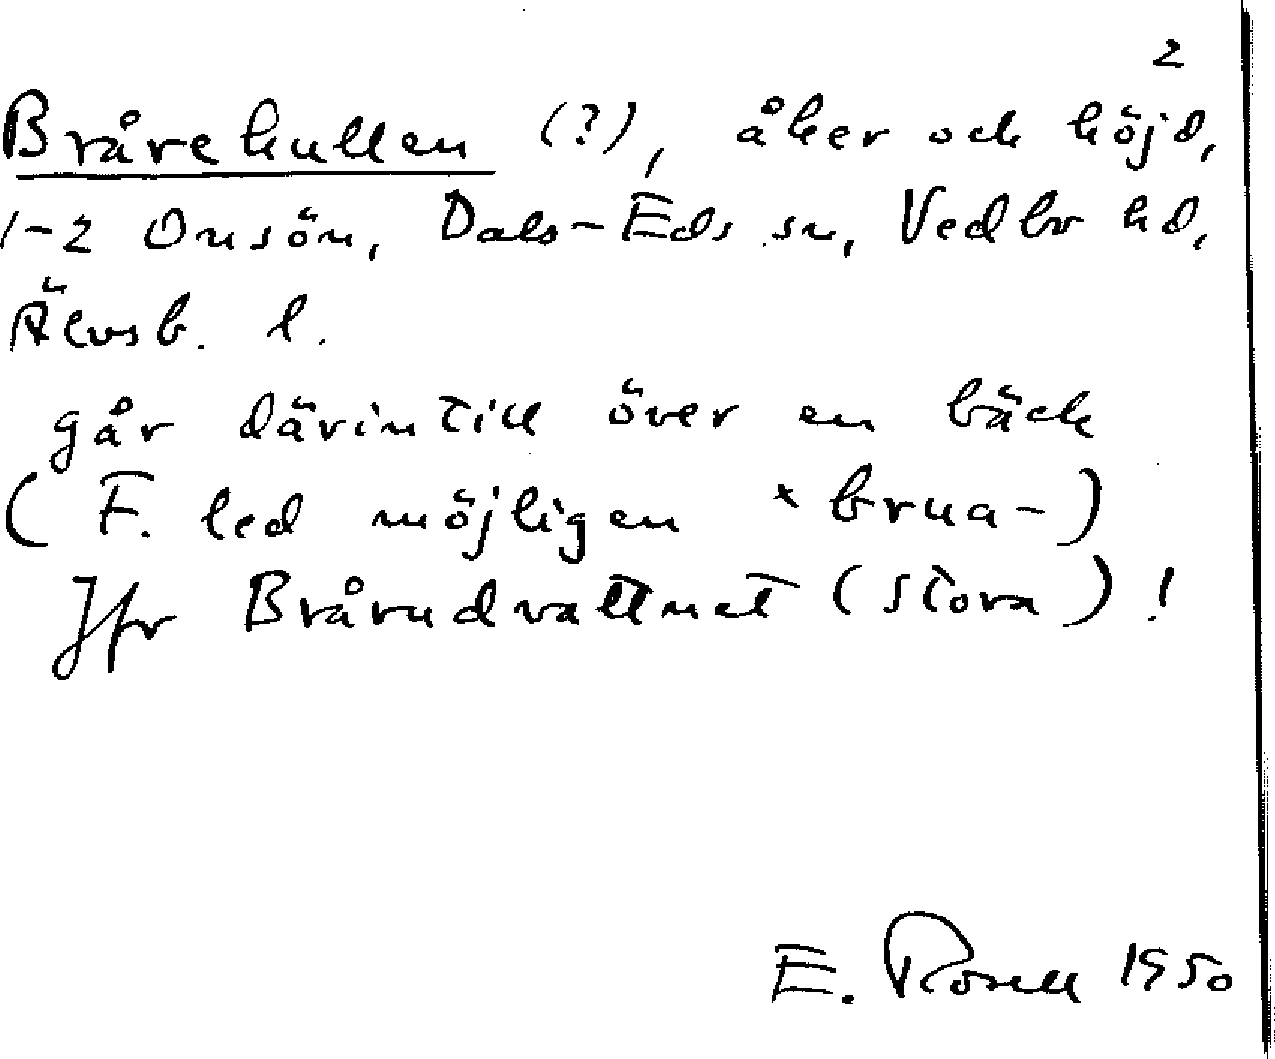 2
Bråvekullen (?), åker och höjd,
1-2 Onsön, Dals-Eds sn, Vedbo hd,
Älvsb. l.
går därintill över en bäck
(F. led möjligen *brua-)
Jfr Brårudvattnet (stora)!
E. 1950